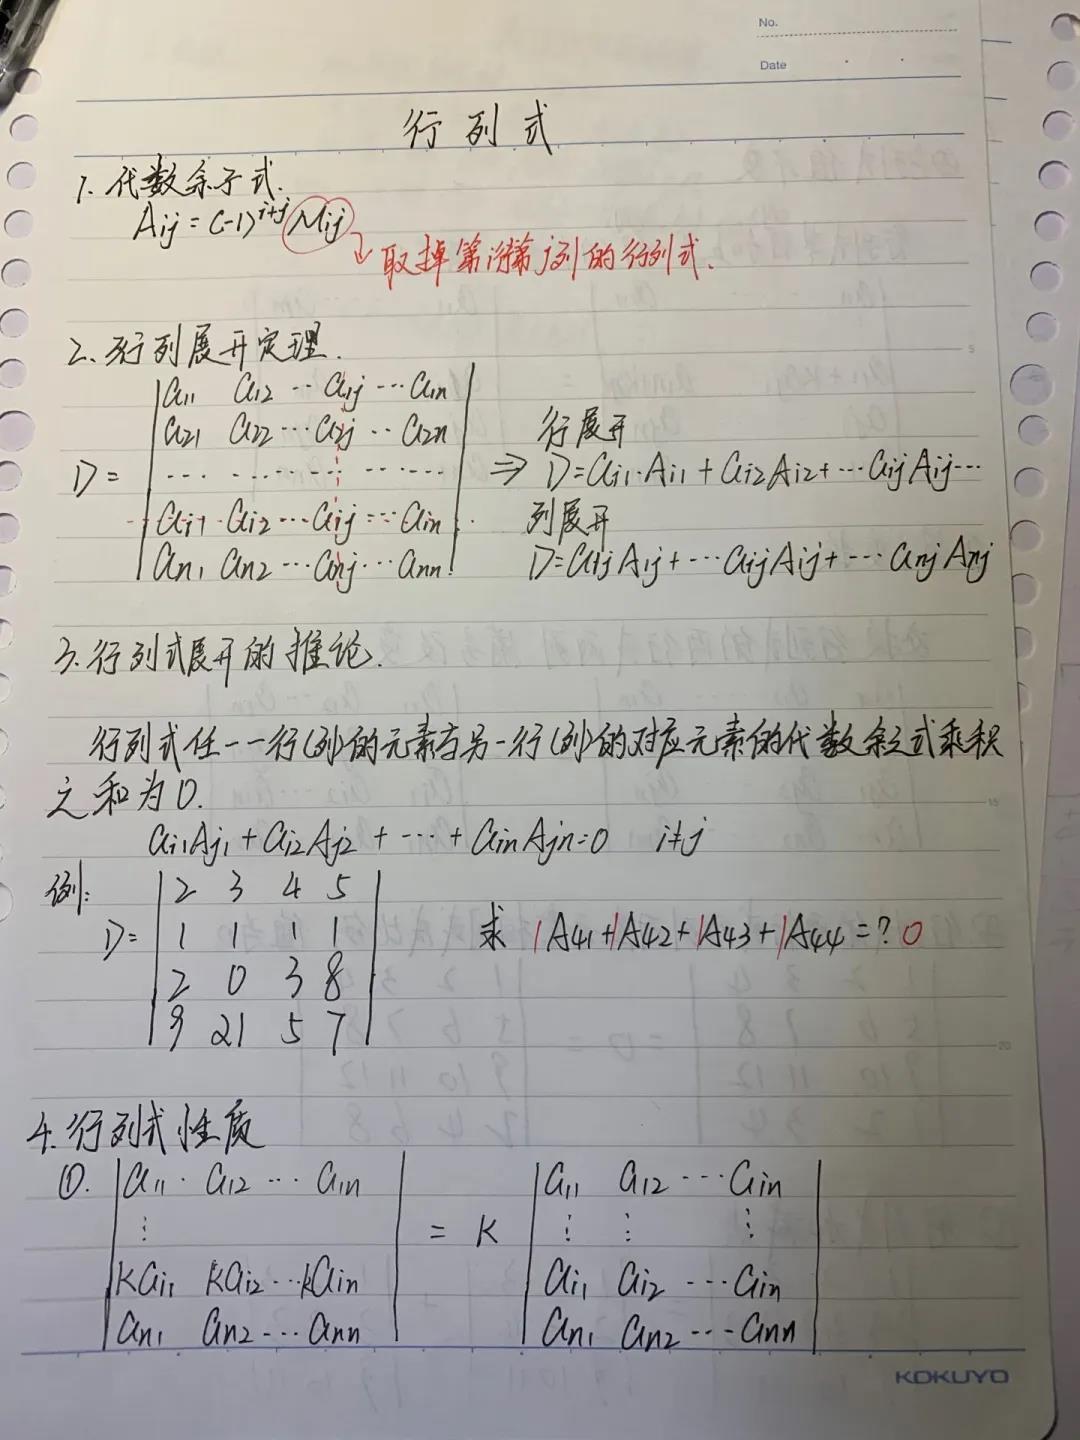 No.
Date
行列式
1. 代数余子式.
Aij = (-1)^{i+j} Mij
取掉第i行第j列的行列式.
2. 行列展开定理.
D = | a11 a12 ... a1j ... a1n |
| a21 a22 ... a2j .. a2n |
| ... ... ... ... |
| ai1 ai2 ... aij ... ain |
| an1 an2 ... anj ... ann |
⇒ 行展开
D = ai1·Ai1 + ai2Ai2 + ... aijAij ...
列展开
D = a1jA1j + ... aijAij + ... anjAnj
3. 行列式展开的推论.
行列式任一一行(列)的元素与另一行(列)的对应元素的代数余子式乘积
之和为0.
ai1Aj1 + ai2Aj2 + ... + ainAjn = 0 i≠j
例:
D = | 2 3 4 5 |
| 1 1 1 1 |
| 2 0 3 8 |
| 9 21 5 7 |
求 1A41+1A42+1A43+1A44=? 0
4. 行列式性质
①. | a11 · a12 ... a1n | = K | a11 a12 ... ain |
| ⋮ | | ⋮ ⋮ ⋮ |
| Kai1 Kai2 ... kain | | ai1 ai2 ... ain |
| an1 an2 ... ann | | an1 an2 ... ann |
KOKUYO